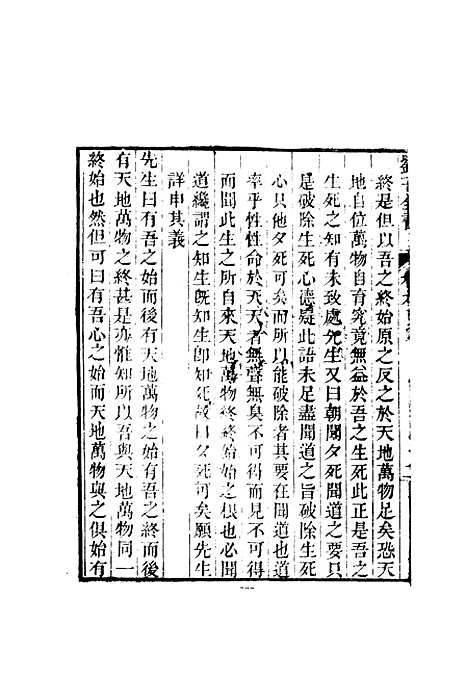 劉子全書
終是但以吾之終始原之反之於天地萬物足矣恐天
地自位萬物自育究竟無益於吾之生死此正是吾之
生死之知有未致處先生又曰朝聞夕死聞道之要只
是破除生死心德疑此語未足盡聞道之旨破除生死
心只他夕死可矣而所以能破除者其要在聞道也道
率乎性性命於天天者無聲無臭不可得而見不可得
而聞此生之所自來天地萬物終終始始之根也必聞
道纔謂之知生旣知生卽知死故曰夕死可矣願先生
詳申其義
先生曰有吾之始而後有天地萬物之終而後
有天地萬物之終甚是亦惟知所以吾與天地萬物同一
終始也然但可曰有吾心之始而天地萬物與之俱始有